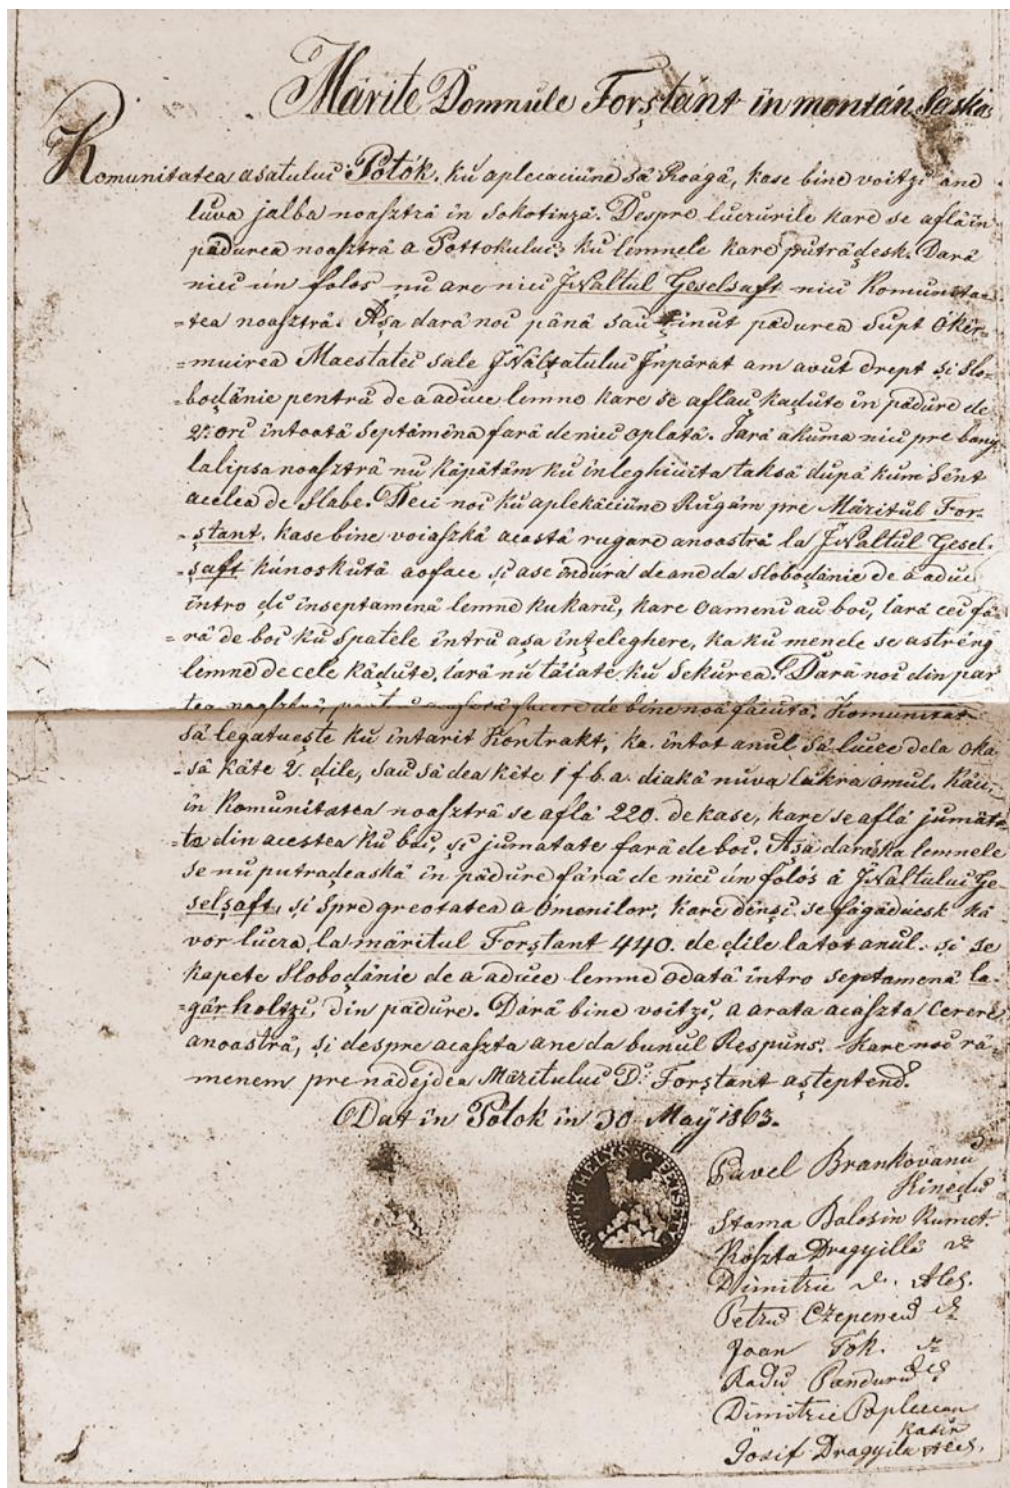 Mărite Domnule Forștant in montán Saska
Komunitatea asatului Potók. kú aplecaciúne să Roagă, kase bine voitzi ane
luva jalba noasztră in Sokotinză. Despre lucrurile kare se află in
pădurea noasztră a Pottokului: kú lemnele kare putrădesk. Dară
nici ún folos nu are nici JNaltul Geselsaft nici Komunitaa=
=tea noasztră. Așa dară noi până sau ținut pădurea Supt Okâr=
=muirea Maestatei sale JNălțatului Jnpărat am avut drept și Slo=
=bodănie pentră de a aduce lemne kare se aflau kadute in pădure de
2: ori intoată Septămâna fară de nici oplată. Jară akuma nici pre bany
lalipsa noasztră nu kăpătăm kú inleghiuita taksă după kum sént
acelea de Slabe. Deci noi kú aplekăciúne Rugăm pre Măritúl For=
=ștant. kase bine voiaszkă acastă rugare anoastră la JNaltúl Gesel=
=șaft kúnoskútă aoface și ase indúra de ane da Slobodănie de a aduce
intro di inseptamenă lemne kukaru, kare oameni au boi, iară cei fă=
=ră de boi kú Spatele intru așa ințeleghere, ka kú menele se astréng
lemne de cele kădute, iară nú tăiate kú Sekurea. Dară noi din par
de bine noă făcută. Komunitat
să legatuește kú intarit Kontrakt, ka. intot anúl să lucre dela oka
=să káte 2. dile, sau să dea kête 1 f. b. a. diakă núva lúkra omul. Kăci,
in Komunitatea noasztră se află 220. de kase, kare se aflá jumăta
=te din acestea kú boi, și jumatate fară de boi. Așa dară ska lemnele
se nu putradeaskă in pădure fără de nici ún folós á JNaltului Ge=
selșaft, și Spre greotatea a ómenilor, kare dênși se făgăduesk kă
vor lucra la măritul Forștant 440. de dile latot anul. și se
kapete Slobodănie de a aduce lemne odată intro septamenă la=
=gárholtzi, din pădure. Dară bine voitzi, a arata acaszta Cerere
anoastră, și despre acaszta ane da bunul Respuns. Kare noi ră=
=menem pre nădejdea Măritului D: Forștant aștepténd.
Dat in Potok in 30 Maÿ 1863.
POTOK HELYS: G
Pavel Brankovanu
Kinedu
Stama Balosin Kumet.
Koszta Dragyillă
Dimitrie Aleș.
Petru Czepeneu
Joan Tok.
Radu Panduru
Dimitrie Poplician
Kasir
Josif Dragyila